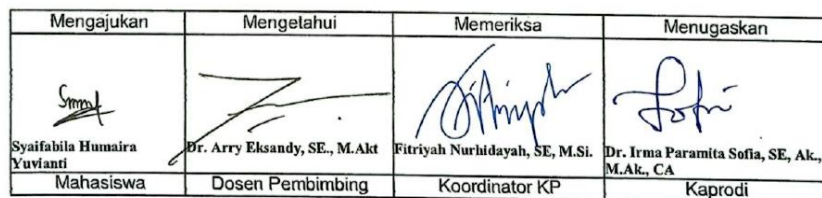 Mengajukan Mengetahui Memeriksa Menugaskan
Syaifabila Humaira
Yuvianti
Dr. Arry Eksandy, SE., M.Akt
Fitriyah Nurhidayah, SE, M.Si.
Dr. Irma Paramita Sofia, SE, Ak.,
M.Ak., CA
Mahasiswa Dosen Pembimbing Koordinator KP Kaprodi